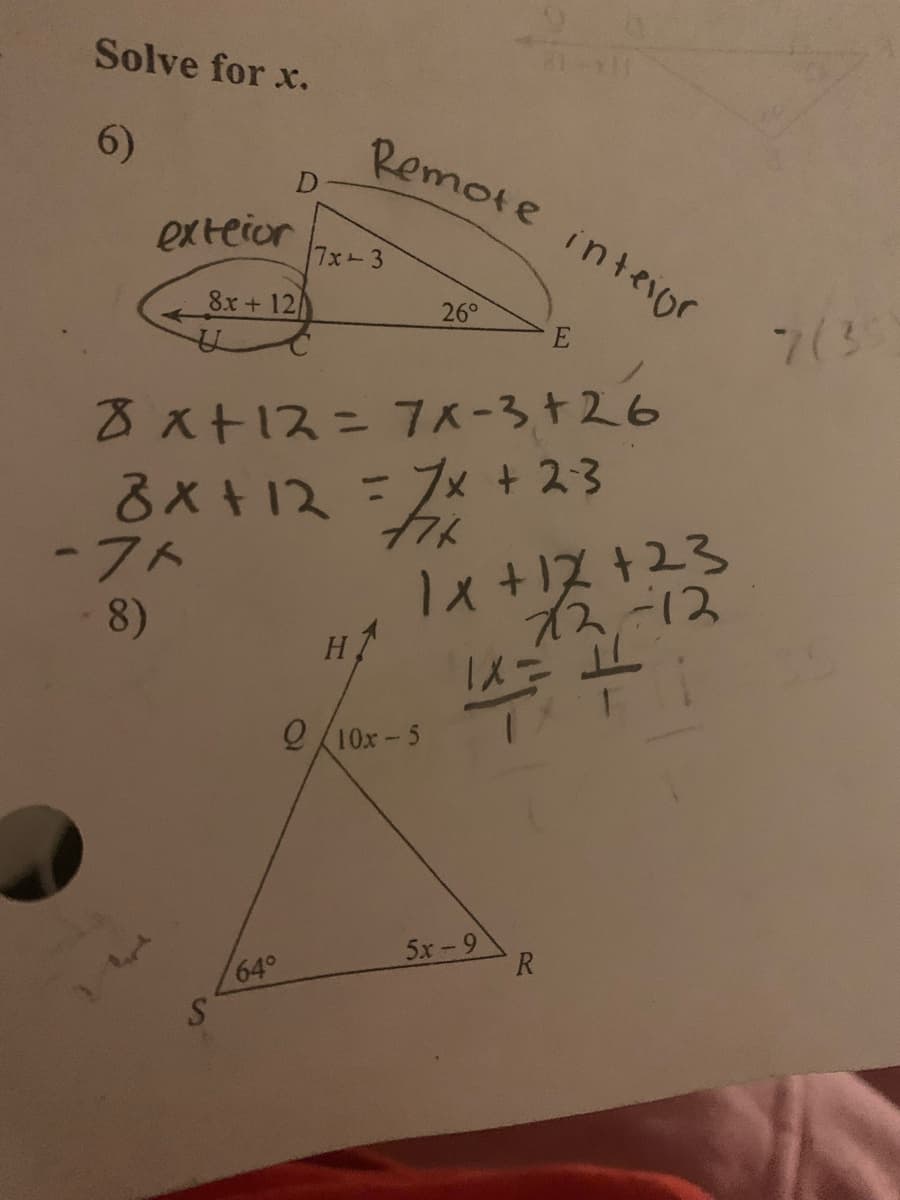 Solve for x.
6)
Remote inteior
D
exteior
7x - 3
8x + 12
26°
U C
E
7(35
8x+12 = 7x-3+26
8x+12 = 7x + 23
-7x -7x
1x +12 +23
-12 -12
8)
H
1x = 11
1 1
Q 10x - 5
64°
5x - 9
R
S